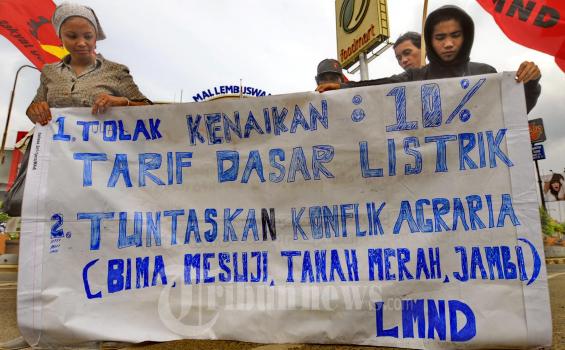 LMND
foodmart
MAL LEMBUSWANA
1. TOLAK KENAIKAN : 10%
TARIF DASAR LISTRIK
2. TUNTASKAN KONFLIK AGRARIA
(BIMA, MESUJI, TANAH MERAH, JAMBI)
LMND
Tribunnews.com